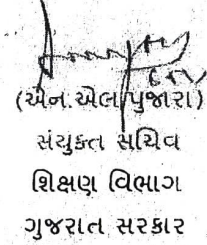 (એન.એલ.પુજારા)
સંયુક્ત સચિવ
શિક્ષણ વિભાગ
ગુજરાત સરકાર